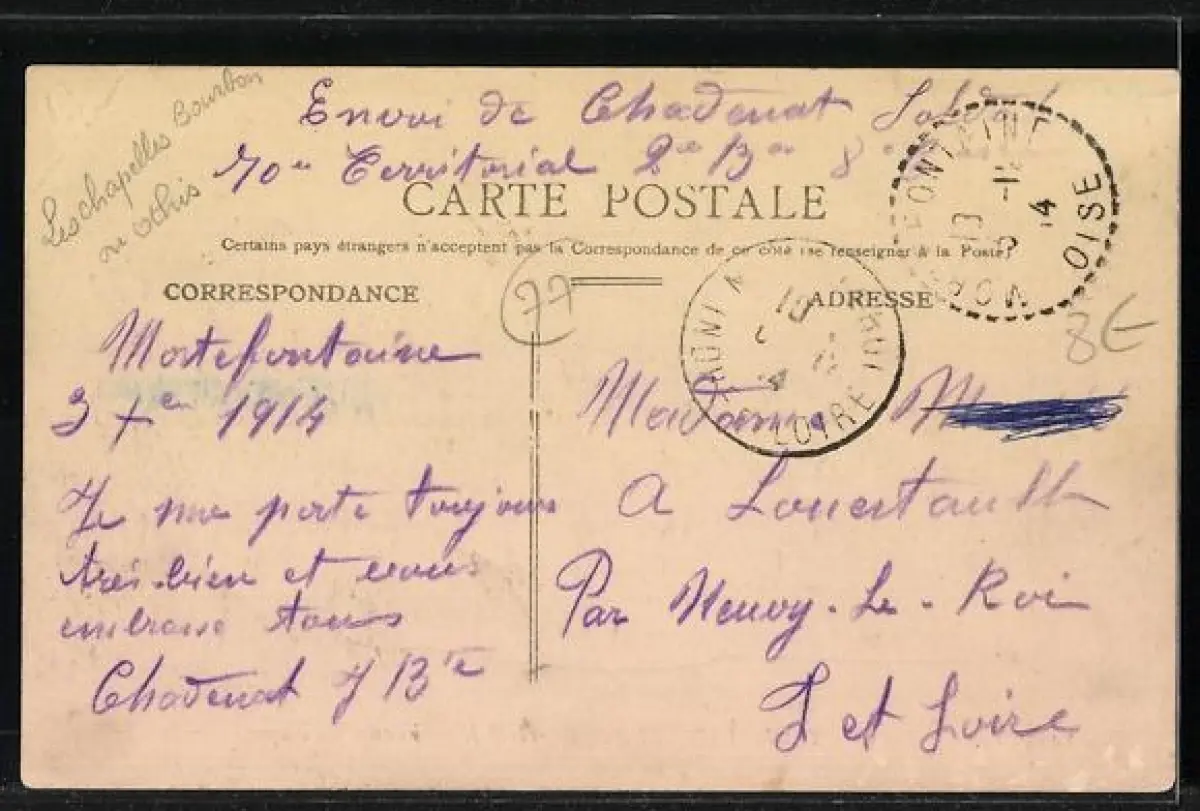 Les chapelles Bourbon
Envoi de Chadenat Soldat
70e Territorial 2e Bon 8
CARTE POSTALE
Certains pays étrangers n'acceptent pas la Correspondance de ce côté (se renseigner à la Poste)
CORRESPONDANCE
77
ADRESSE
OISE
14
LOIRE
8€
Mortefontaine
3 Xen 1914
Je me porte toujours
très-bien et vous
embrasse tous
Chadenat J Bte
Madame
A Louestault
Par Neuvy-Le-Roi
I et Loire